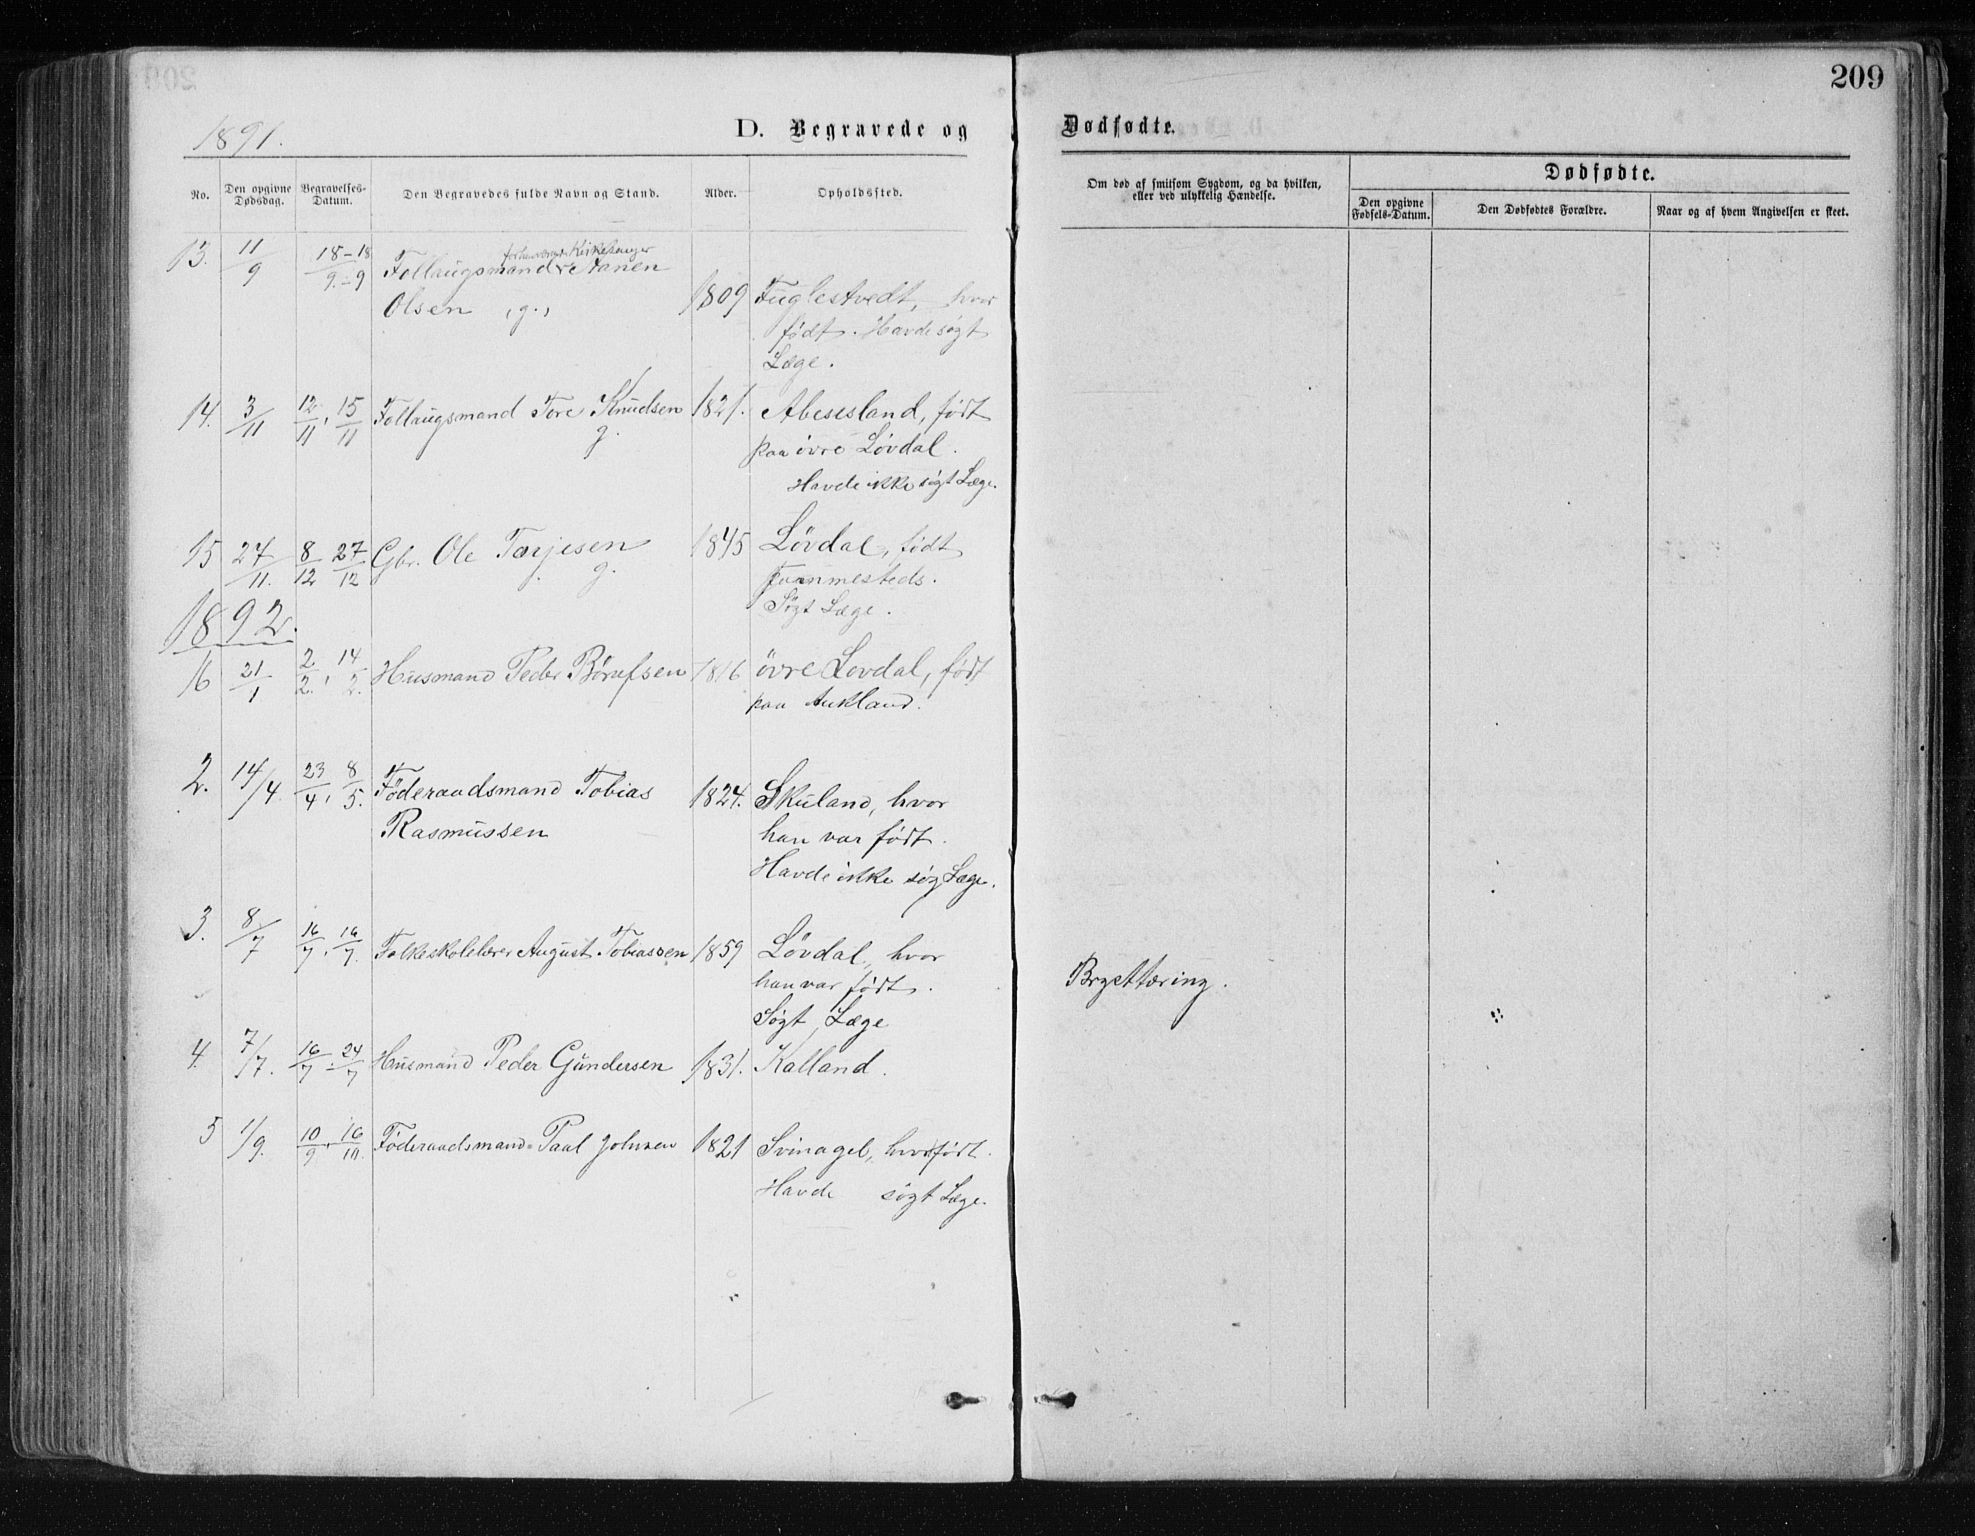 209
1891.
D. Begravede og
Dødfødte.
No.
Den opgivne Dødsdag.
Begravelses-Datum.
Den Begravedes fulde Navn og Stand.
Alder.
Opholdssted.
Om død af smitsom Sygdom, og da hvilken, eller ved ulykkelig Hændelse.
Dødfødte.
Den opgivne Fødsels-Datum.
Den Dødfødtes Forældre.
Naar og af hvem Angivelsen er skeet.
13. 11/9 18/9 - 18/9 Follaugsmand Kirkesanger
Olsen g. 1809 Fuglestvedt, hvor
født. Havde søgt
Læge.
14. 3/11 12/11, 15/11 Follaugsmand Tore Knudsen 1821. Abesland, født
g. paa øvre Løvdal.
Havde ikke søgt Læge.
15 27/11. 8/12 27/12 Gbr. Ole Tarjesen 1845 Løvdal, født
g. sammesteds.
Søgt Læge.
1892.
16 21/1 2/2. 14/2. Husmand Peder Børufsen 1816 øvre Lovdal, født
paa Aukland.
2. 14/4. 23/4. 8/5. Föderaadsmand Tobias 1824. Skuland, hvor
Rasmussen han var født.
Havde ikke søg Læge.
3. 8/7 16/7. 16/7. Folkeskolelærer August Tobiassen 1859 Løvdal, hvor
han var født. Brysttæring.
Søgt Læge
4. 7/7. 16/7. 24/7 Husmand Peder Gundersen 1831. Kalland.
5 1/9. 10/9. 16/10. Föderaadsmand Paal Johnsen 1821 Svinagel, hvor født.
Havde søgt Læge.